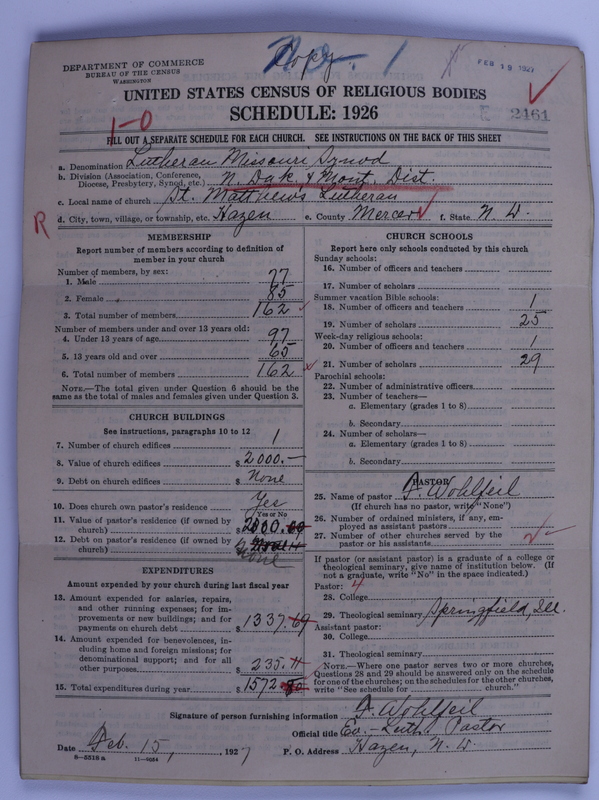 Copy
No. 1
DEPARTMENT OF COMMERCE
BUREAU OF THE CENSUS
WASHINGTON
FEB 19 1927
UNITED STATES CENSUS OF RELIGIOUS BODIES
SCHEDULE: 1926
2461
1-0
FILL OUT A SEPARATE SCHEDULE FOR EACH CHURCH. SEE INSTRUCTIONS ON THE BACK OF THIS SHEET
a. Denomination Lutheran Missouri Synod
b. Division (Association, Conference, Diocese, Presbytery, Synod, etc.) N. Dak. & Mont. Dist.
c. Local name of church St. Matthews Lutheran
R
d. City, town, village, or township, etc. Hazen e. County Mercer f. State N. D.
MEMBERSHIP
Report number of members according to definition of
member in your church
Number of members, by sex:
1. Male 77
2. Female 85
3. Total number of members 162
Number of members under and over 13 years old:
4. Under 13 years of age 97
5. 13 years old and over 65
6. Total number of members 162
NOTE.—The total given under Question 6 should be
same as the total of males and females given under Question 3.
CHURCH BUILDINGS
See instructions, paragraphs 10 to 12
7. Number of church edifices 1
8. Value of church edifices $2000.—
9. Debt on church edifices $ None
10. Does church own pastor's residence? Yes
Yes or No
11. Value of pastor's residence (if owned by
church) $2000.00
12. Debt on pastor's residence (if owned by
church) $
None
EXPENDITURES
Amount expended by your church during last fiscal year
13. Amount expended for salaries, repairs,
and other running expenses; for im-
provements or new buildings; and for
payments on church debt $1337.69
14. Amount expended for benevolences, in-
cluding home and foreign missions; for
denominational support; and for all
other purposes $235.11
15. Total expenditures during year $1572.80
CHURCH SCHOOLS
Report here only schools conducted by this church
Sunday schools:
16. Number of officers and teachers
17. Number of scholars
Summer vacation Bible schools:
18. Number of officers and teachers 1
19. Number of scholars 25
Week-day religious schools:
20. Number of officers and teachers 1
21. Number of scholars 29
Parochial schools:
22. Number of administrative officers
23. Number of teachers—
a. Elementary (grades 1 to 8)
b. Secondary
24. Number of scholars—
a. Elementary (grades 1 to 8)
b. Secondary
PASTOR
25. Name of pastor F. Wohlfeil
(If church has no pastor, write "None")
26. Number of ordained ministers, if any, em-
ployed as assistant pastors
27. Number of other churches served by the
pastor or his assistants
If pastor (or assistant pastor) is a graduate of a college or
theological seminary, give name of institution below. (If
not a graduate, write "No" in the space indicated.)
Pastor: 4
28. College
29. Theological seminary Springfield, Ill.
Assistant pastor:
30. College
31. Theological seminary
NOTE.—Where one pastor serves two or more churches,
Questions 28 and 29 should be answered only on the schedule
for one of the churches; on the schedules for the other churches,
write "See schedule for church."
Signature of person furnishing information F. Wohlfeil
Official title Ev.-Luth. Pastor
Date Feb. 15, 1927 P. O. Address Hazen, N. D.
8—5318 a 11—9054